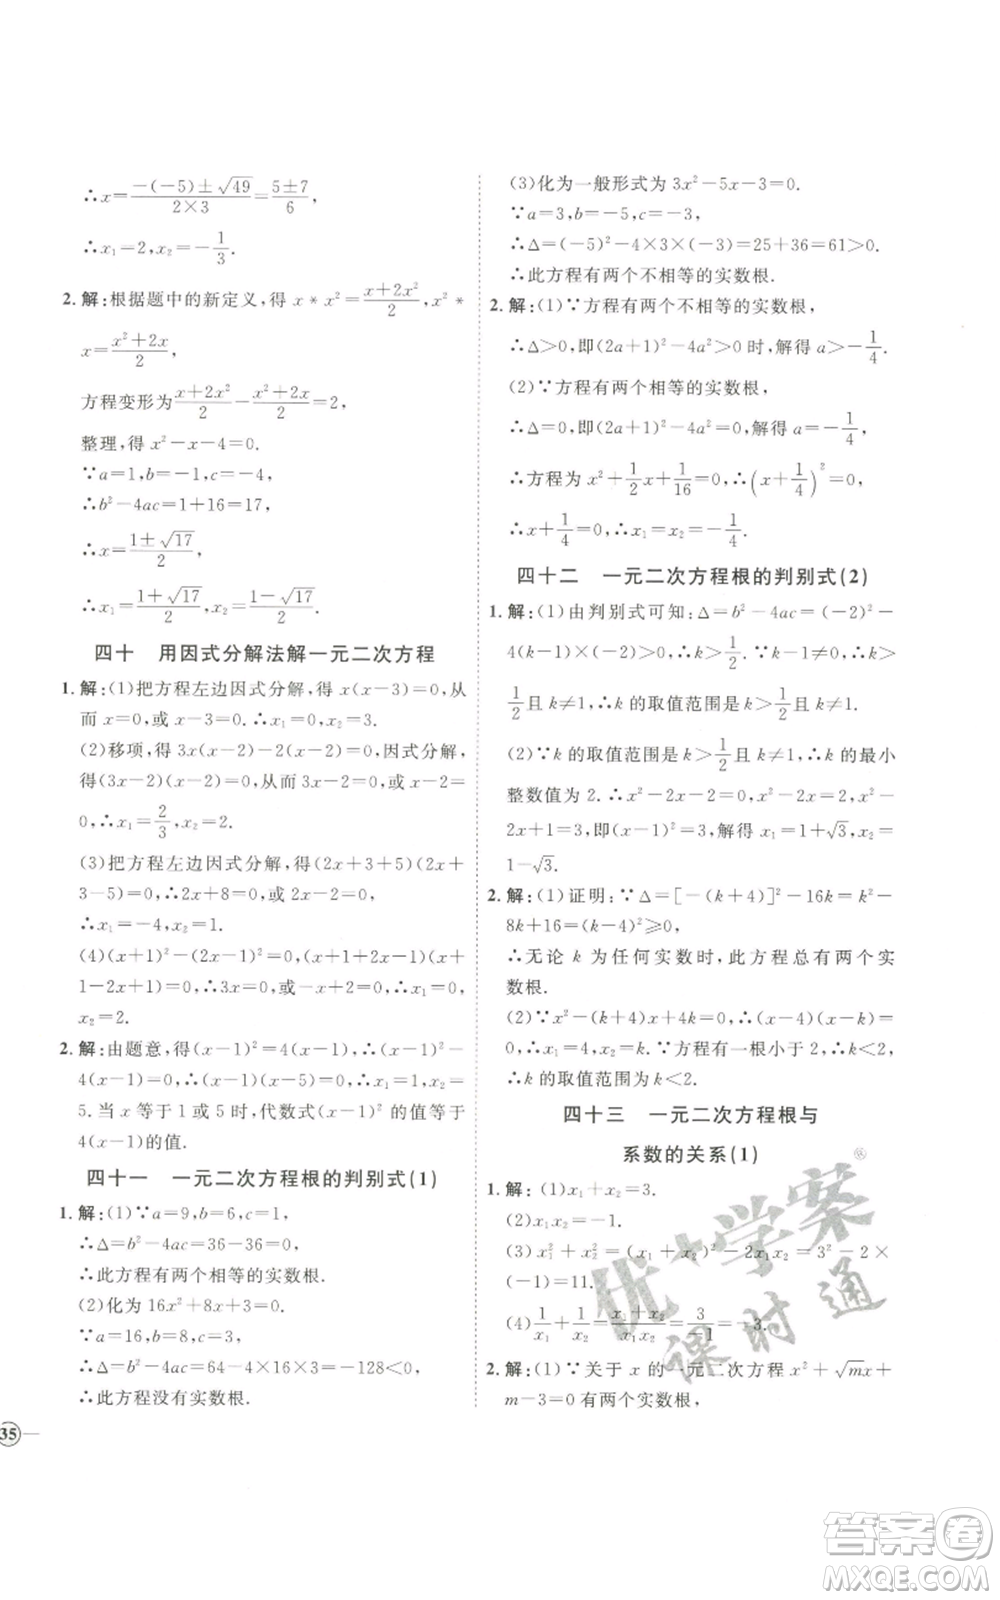 ∴x=\frac{-(-5)±\sqrt{49}}{2×3}=\frac{5±7}{6},
∴x₁=2,x₂=-\frac{1}{3}.
2. 解:根据题中的新定义,得 x*x²=\frac{x+2x²}{2},x²*
x=\frac{x²+2x}{2},
方程变形为\frac{x+2x²}{2}-\frac{x²+2x}{2}=2,
整理,得 x²-x-4=0.
∵a=1,b=-1,c=-4,
∴b²-4ac=1+16=17,
∴x=\frac{1±\sqrt{17}}{2},
∴x₁=\frac{1+\sqrt{17}}{2},x₂=\frac{1-\sqrt{17}}{2}.
四十 用因式分解法解一元二次方程
1. 解:(1)把方程左边因式分解,得 x(x-3)=0,从
而 x=0,或 x-3=0.∴x₁=0,x₂=3.
(2)移项,得 3x(x-2)-2(x-2)=0,因式分解,
得(3x-2)(x-2)=0,从而 3x-2=0,或 x-2
=0,∴x₁=\frac{2}{3},x₂=2.
(3)把方程左边因式分解,得(2x+3+5)(2x+
3-5)=0,∴2x+8=0,或 2x-2=0,
∴x₁=-4,x₂=1.
(4)(x+1)²-(2x-1)²=0,∴(x+1+2x-1)(x+
1-2x+1)=0,∴3x=0,或-x+2=0,∴x₁=0,
x₂=2.
2. 解:由题意,得(x-1)²=4(x-1),∴(x-1)²-
4(x-1)=0,∴(x-1)(x-5)=0,∴x₁=1,x₂=
5.当 x 等于 1 或 5 时,代数式(x-1)² 的值等于
4(x-1)的值.
四十一 一元二次方程根的判别式(1)
1. 解:(1)∵a=9,b=6,c=1,
∴Δ=b²-4ac=36-36=0,
∴此方程有两个相等的实数根.
(2)化为 16x²+8x+3=0,
∵a=16,b=8,c=3,
∴Δ=b²-4ac=64-4×16×3=-128<0,
∴此方程没有实数根.
35
(3)化为一般形式为 3x²-5x-3=0.
∵a=3,b=-5,c=-3,
∴Δ=(-5)²-4×3×(-3)=25+36=61>0.
∴此方程有两个不相等的实数根.
2. 解:(1)∵方程有两个不相等的实数根,
∴Δ>0,即(2a+1)²-4a²>0 时,解得 a>-\frac{1}{4}.
(2)∵方程有两个相等的实数根,
∴Δ=0,即(2a+1)²-4a²=0,解得 a=-\frac{1}{4},
∴方程为 x²+\frac{1}{2}x+\frac{1}{16}=0,∴(x+\frac{1}{4})²=0,
∴x+\frac{1}{4}=0,∴x₁=x₂=-\frac{1}{4}.
四十二 一元二次方程根的判别式(2)
1. 解:(1)由判别式可知:Δ=b²-4ac=(-2)²-
4(k-1)(-2)=8k-4>0,∴k>\frac{1}{2},又∵k≠1,∴k>
\frac{1}{2}且 k≠1.∴k 的取值范围是 k>\frac{1}{2}且 k≠1.
(2)∵k 的取值范围是 k>\frac{1}{2}且 k≠1,∴k 的最小
整数值为 2.∴x²-2x-2=0,∴x²-2x=2,x²-
2x+1=3,即(x-1)²=3,解得 x₁=1+√3,x₂=
1-√3.
2. 解:(1)证明:∵Δ=[-(k+4)]²-16k=k²-
8k+16=(k-4)²≥0,
∴无论 k 为任何实数时,此方程总有两个实
数根.
(2)∵x²-(k+4)x+4k=0,∴(x-4)(x-k)=
0,∴x₁=4,x₂=k.∵方程有一根小于 2,∴k<2,
∴k 的取值范围为 k<2.
四十三 一元二次方程根与
系数的关系(1)
1. 解:(1)x₁+x₂=3.
(2)x₁x₂=-1.
(3)x₁²+x₂²=(x₁+x₂)²-2x₁x₂=3²-2×
(-1)=11.
(4)\frac{1}{x₁}+\frac{1}{x₂}=\frac{x₁+x₂}{x₁x₂}=\frac{3}{-1}=-3.
2. 解:(1)∵关于 x 的一元二次方程 x²+\sqrt{m}x+
m-3=0 有两个实数根,
优+学案
课时通
答案卷
MXQE.COM